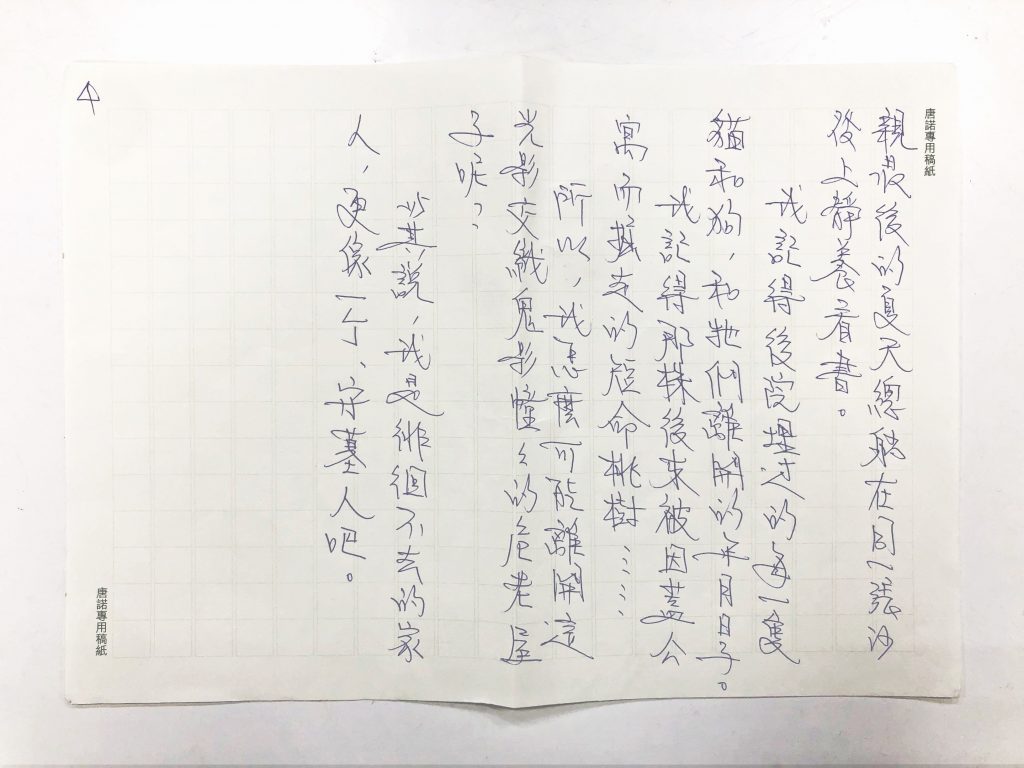 唐諾專用稿紙
親最後的夏天總躺在同一張沙
發上靜養看書。
我記得後院埋过的每一隻
貓和狗,和牠们離開的年月日子。
我記得那株後来被因蓋公
寓而掘走的短命桃樹……
所以,我怎麼可能離開這
光影交織鬼影幢々的危老屋
子呢?
與其說,我是徘徊不去的家
人,更像一个、守墓人吧。
4
唐諾專用稿紙